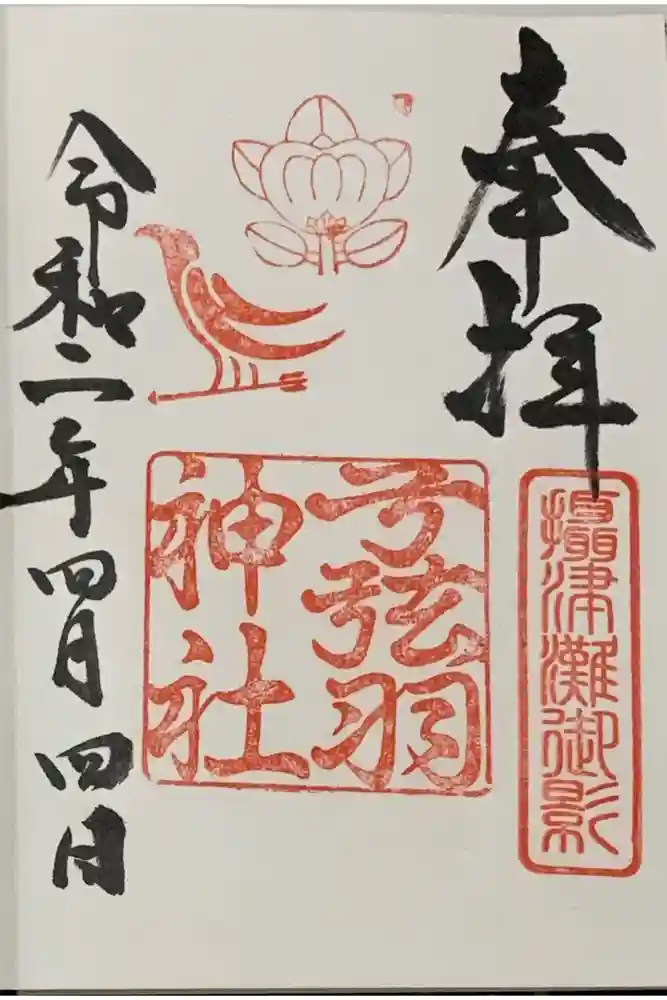 奉拝
攝津灘御影
弓弦羽
神社
令和二年四月四日